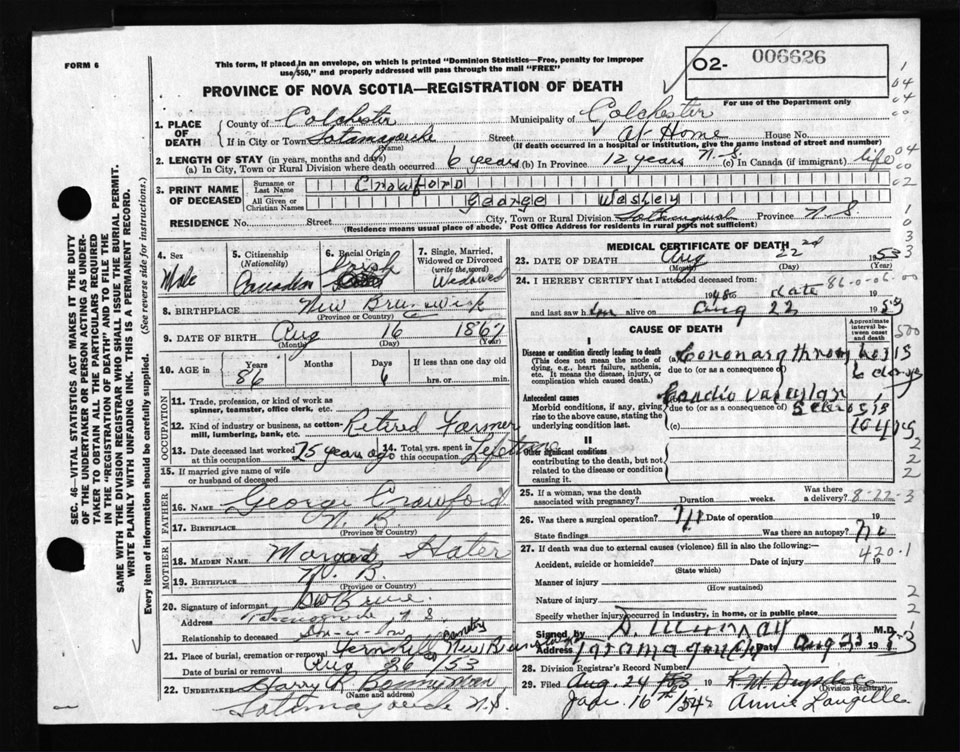 FORM 6
This form, if placed in an envelope, on which is printed "Dominion Statistics—Free, penalty for improper
use/$50," and properly addressed will pass through the mail "FREE"
O2- 006626
For use of the Department only
PROVINCE OF NOVA SCOTIA—REGISTRATION OF DEATH
1. PLACE OF DEATH
County of Colchester Municipality of Colchester
If in City or Town Tatamagouche Street At Home House No.
(Name) (If death occurred in a hospital or institution, give the name instead of street and number)
2. LENGTH OF STAY (in years, months and days)
(a) In City, Town or Rural Division where death occurred 6 years (b) In Province 12 years N.S. (c) In Canada (if immigrant) life
3. PRINT NAME OF DECEASED
Surname or Last Name Crawford
All Given or Christian Names George Wesley
RESIDENCE No. Street City, Town or Rural Division Province N.S.
(Residence means usual place of abode. Post Office Address for residents in rural parts not sufficient)
4. Sex Male
5. Citizenship (Nationality) Canadian
6. Racial Origin Irish
7. Single, Married, Widowed or Divorced (write the word) Widowed
8. BIRTHPLACE New Brunswick
(Province or Country)
9. DATE OF BIRTH Aug 16 1867
(Month) (Day) (Year)
10. AGE in Years 86 Months Days 6 If less than one day old hrs. or min.
OCCUPATION
11. Trade, profession, or kind of work as
spinner, teamster, office clerk, etc.
12. Kind of industry or business, as cotton-
mill, lumbering, bank, etc. Retired Farmer
13. Date deceased last worked at this occupation 25 years ago
14. Total yrs. spent in this occupation Lifetime
15. If married give name of wife
or husband of deceased
FATHER
16. NAME George Crawford
17. BIRTHPLACE N. B.
(Province or Country)
MOTHER
18. MAIDEN NAME Hater
19. BIRTHPLACE N. B.
(Province or Country)
20. Signature of informant
Address N.S.
Relationship to deceased Son-in-law
21. Place of burial, cremation or removal Fernhill Cemetery New Brunswick
Date of burial or removal Aug 26/53
22. UNDERTAKER Harry Bonnyman
(Name and address)
Tatamagouche N.S.
MEDICAL CERTIFICATE OF DEATH
23. DATE OF DEATH Aug 22nd 1953
(Month) (Day) (Year)
24. I HEREBY CERTIFY that I attended deceased from:
1948 to date 19
and last saw him alive on Aug 22 1953
CAUSE OF DEATH
Approximate interval between onset and death
I
Disease or condition directly leading to death
(This does not mean the mode of
dying, e.g., heart failure, asthenia,
etc. It means the disease, injury, or
complication which caused death.)
(a) Coronary thrombosis
due to (or as a consequence of) 6 days
Antecedent causes
Morbid conditions, if any, giving
rise to the above cause, stating the
underlying condition last.
(b) Cardio vascular
due to (or as a consequence of) sclerosis
(c) 10 yrs
II
Other significant conditions
contributing to the death, but not
related to the disease or condition
causing it.
25. If a woman, was the death
associated with pregnancy? Duration weeks. Was there a delivery? 8-22-3
26. Was there a surgical operation? Date of operation 19
State findings Was there an autopsy? no
27. If death was due to external causes (violence) fill in also the following:- 420.1
Accident, suicide or homicide? Date of injury 19
(State which)
Manner of injury
(How sustained)
Nature of injury
Specify whether injury occurred in industry, in home, or in public place
Signed by D. Murray M.D.
Address Tatamagouche Date Aug 23 1953
28. Division Registrar's Record Number
29. Filed Aug. 24/53 19
(Division Registrar)
Jan. 16th/54 Annie Langille
SEC. 46—VITAL STATISTICS ACT MAKES IT THE DUTY
OF THE UNDERTAKER OR PERSON ACTING AS UNDER-
TAKER TO OBTAIN ALL THE PARTICULARS REQUIRED
IN THE "REGISTRATION OF DEATH" AND TO FILE THE
SAME WITH THE DIVISION REGISTRAR WHO SHALL ISSUE THE BURIAL PERMIT.
WRITE PLAINLY WITH UNFADING INK. THIS IS A PERMANENT RECORD.
Every item of information should be carefully supplied. (See reverse side for instructions.)